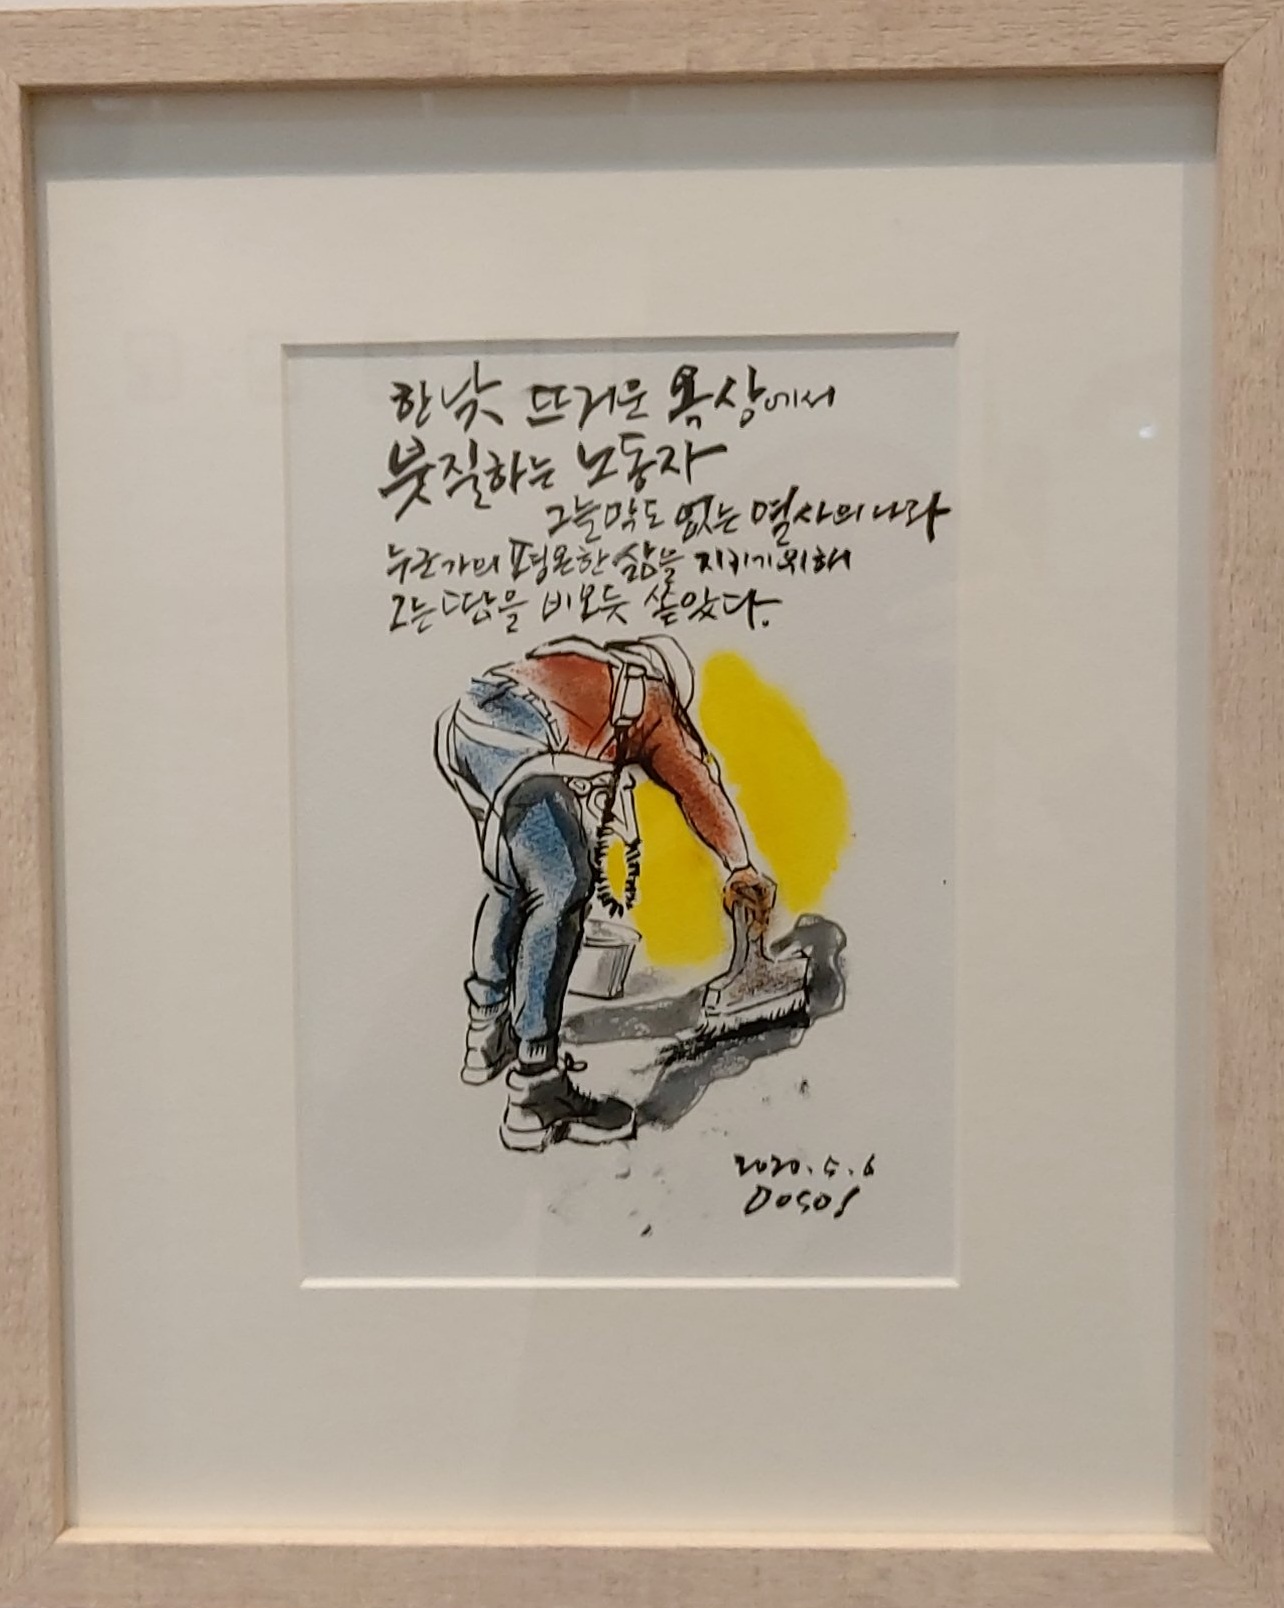 한낮 뜨거운 옥상에서
붓질하는 노동자
그늘막도 없는 열사의 나라
누군가의 평온한 삶을 지키기 위해
그는 땀을 비오듯 쏟았다.
2020. 5. 6